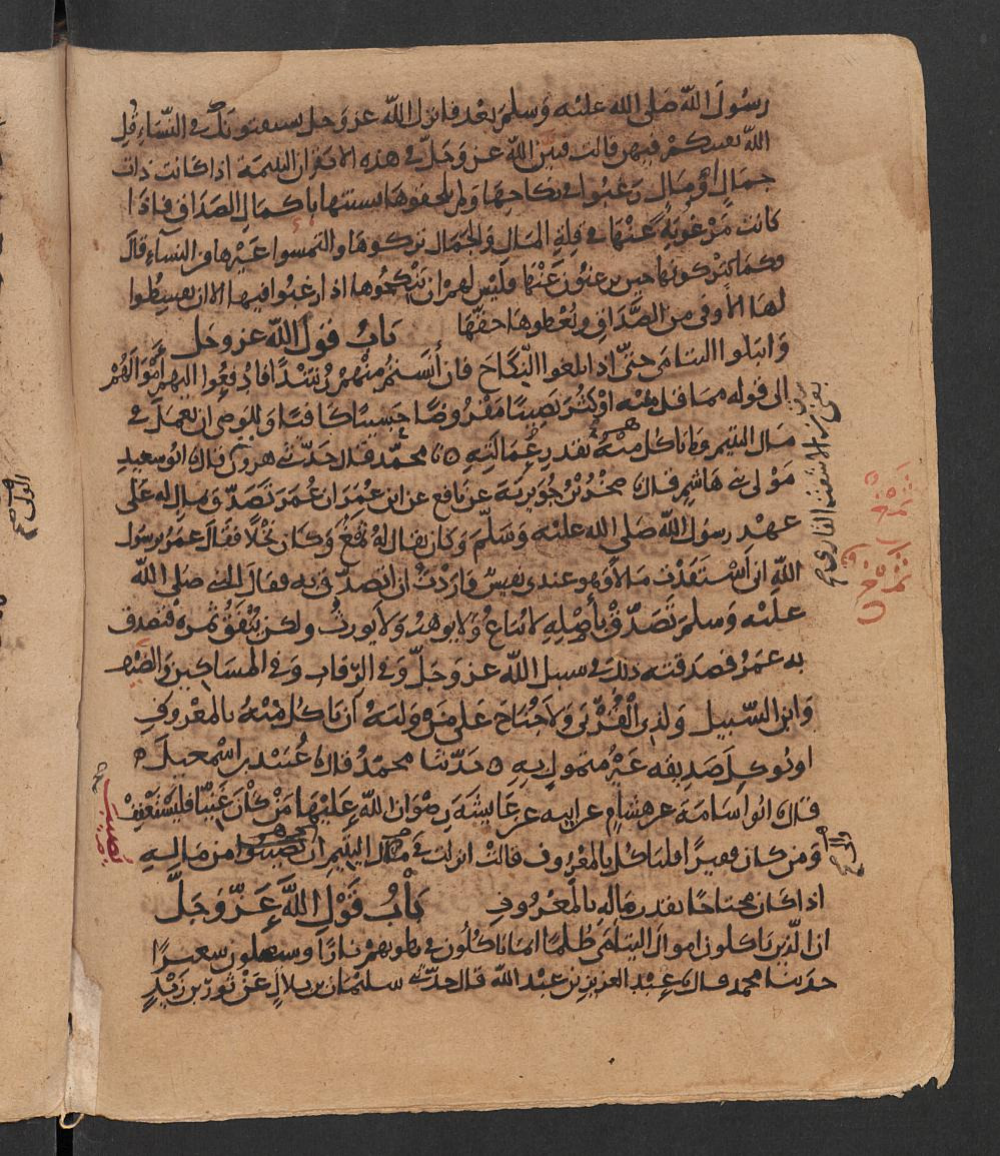 رسول الله صلى الله عليه وسلم بعد فانزل الله عز وجل يستفتونك في النساء قل
الله يفتيكم فيهن قالت فبين الله عز وجل في هذه الاية ان اليتيمة اذا كانت ذات
جمال او مال رغبوا في نكاحها ولم يلحقوها بسنتها باكمال الصداق فاذا
كانت مرغوبة عنها في قلة المال والجمال تركوها والتمسوا غيرها من النساء قال
فكما يتركونها حين يرغبون عنها فليس لهم ان ينكحوها اذا رغبوا فيها الا ان يقسطوا
لها الاوفى من الصداق ويعطوها حقها باب قول الله عز وجل
وابتلوا اليتامى حتى اذا بلغوا النكاح فان أنستم منهم رشدا فادفعوا اليهم أموالهم
الى قوله مما قل منه او كثر نصيبا مفروضا حسيبا كافيا وللوصي ان يعمل في
مال اليتيم وما ياكل منه بقدر عمالته ه محمد قال حدثنا هرون قال ابو سعيد
مولى بني هاشم قال صخر بن جويرية عن نافع عن ابن عمر ان عمر تصدق بمال له على
عهد رسول الله صلى الله عليه وسلم وكان يقال له ثمغ وكان نخلا فقال عمر يرسول
الله اني استفدت مالا وهو عندي نفيس فاردت ان اتصدق به فقال النبي صلى الله
عليه وسلم تصدق بأصله لا يباع ولا يوهب ولا يورث ولكن ينفق ثمره فتصدق
به عمر فصدقته ذلك في سبيل الله عز وجل وفي الرقاب وفي المساكين والضيف
وابن السبيل ولذي القربى ولا جناح على من وليه أن ياكل منه بالمعروف
او يوكل صديقه غير متمول به ه حدثنا محمد قال عبيد بن اسمعيل ه
قال ابو اسامة عن هشام عن ابيه عن عايشة رضوان الله عليها من كان غنيا فليستعفف
ومن كان فقيرا فلياكل بالمعروف قالت انزلت في مال اليتيم ان يصيبوا من ماله
اذا كان محتاجا بقدر ماله بالمعروف باب قول الله عز وجل
ان الذين ياكلون اموال اليتامى ظلما انما ياكلون في بطونهم نارا وسيصلون سعيرا
حدثنا محمد قال عبد العزيز بن عبد الله قال حدثني سليمان بن بلال عن ثور بن زيد